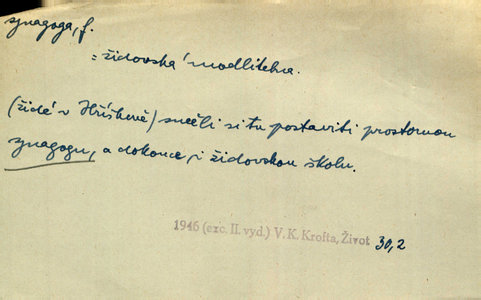 synagoga, f.
= židovská modlitebna.
(židé v Hříškově) směli si tu postaviti prostornou
synagogu, a dokonce i židovskou školu.
1946 (exc. II. vyd.) V. K. Krofta, Život 30,2